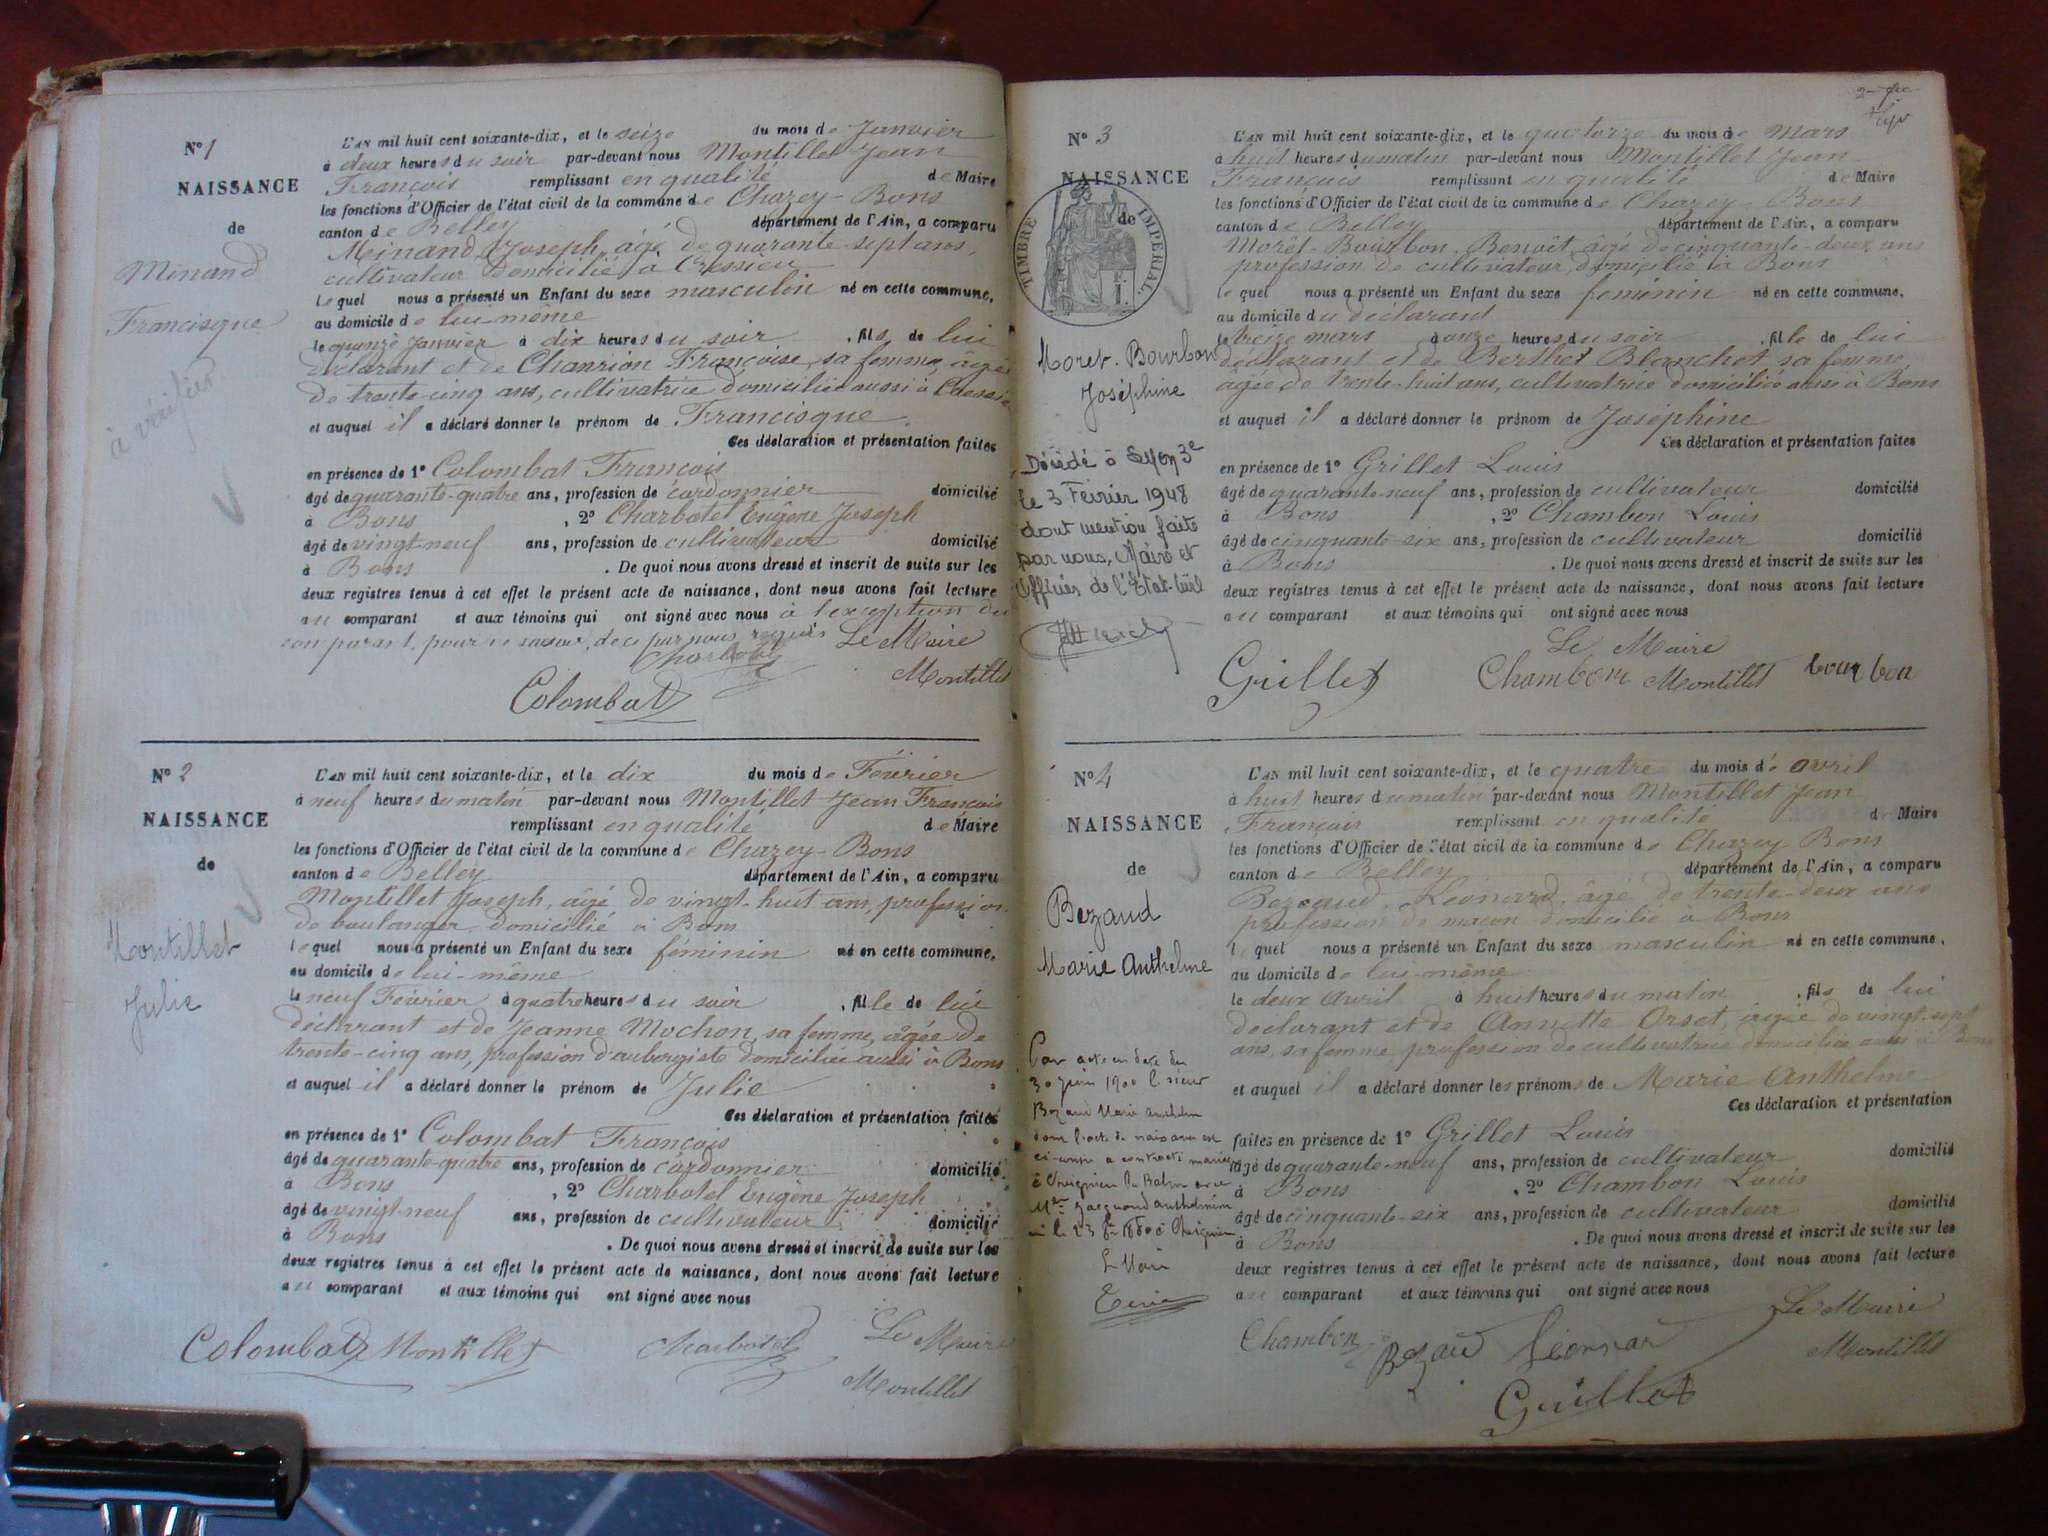 N° 1
NAISSANCE
de
Minand
Francisque
à vérifier
L'AN mil huit cent soixante-dix, et le seize du mois de Janvier
à deux heures du soir par-devant nous Montillet Jean
François remplissant en qualité de Maire
les fonctions d'Officier de l'état civil de la commune de Chazey-Bons
canton de Belley département de l'Ain, a comparu
Minand Joseph, âgé de quarante-sept ans,
cultivateur domicilié à Cressieu
lequel nous a présenté un Enfant du sexe masculin né en cette commune,
au domicile de lui-même
le quinze Janvier à dix heures du soir, fils de lui
déclarant et de Chanrion Françoise, sa femme, âgée
de trente-cinq ans, cultivatrice domiciliée aussi à Cressieu
et auquel il a déclaré donner le prénom de Francisque.
Ces déclaration et présentation faites
en présence de 1° Colombat François
âgé de quarante-quatre ans, profession de cordonnier domicilié
à Bons, 2° Charbotel Eugène Joseph
âgé de vingt-neuf ans, profession de cultivateur domicilié
à Bons. De quoi nous avons dressé et inscrit de suite sur les
deux registres tenus à cet effet le présent acte de naissance, dont nous avons fait lecture
au comparant et aux témoins qui ont signé avec nous à l'exception du
comparant, pour ne savoir, de ce par nous requis Le Maire
Charbotel
Montillet
Colombat
N° 2
NAISSANCE
de
Montillet
Julie
L'AN mil huit cent soixante-dix, et le dix du mois de Février
à neuf heures du matin par-devant nous Montillet Jean François
remplissant en qualité de Maire
les fonctions d'Officier de l'état civil de la commune de Chazey-Bons
canton de Belley département de l'Ain, a comparu
Montillet Joseph, âgé de vingt-huit ans, profession
de boulanger domicilié à Bons
lequel nous a présenté un Enfant du sexe féminin né en cette commune,
au domicile de lui-même
le neuf Février à quatre heures du soir, fille de lui
déclarant et de Jeanne Mochon, sa femme, âgée de
trente-cinq ans, profession d'aubergiste domiciliée aussi à Bons
et auquel il a déclaré donner le prénom de Julie
Ces déclaration et présentation faites
en présence de 1° Colombat François
âgé de quarante-quatre ans, profession de cordonnier domicilié
à Bons, 2° Charbotel Eugène Joseph
âgé de vingt-neuf ans, profession de cultivateur domicilié
à Bons. De quoi nous avons dressé et inscrit de suite sur les
deux registres tenus à cet effet le présent acte de naissance, dont nous avons fait lecture
au comparant et aux témoins qui ont signé avec nous
Colombat Montillet Charbotel Le Maire
Montillet
N° 3
NAISSANCE
de
TIMBRE IMPERIAL
Moret-Bourbon
Joséphine
Décédé à Lyon 3e
le 3 Février 1948
dont mention faite
par nous, Maire et
Officier de l'Etat-Civil
L'AN mil huit cent soixante-dix, et le quatorze du mois de Mars
à huit heures du matin par-devant nous Montillet Jean
François remplissant en qualité de Maire
les fonctions d'Officier de l'état civil de la commune de Chazey-Bons
canton de Belley département de l'Ain, a comparu
Moret-Bourbon, Benoît, âgé de cinquante-deux ans
profession de cultivateur, domicilié à Bons
lequel nous a présenté un Enfant du sexe féminin né en cette commune,
au domicile du déclarant
le treize mars à onze heures du soir, fille de lui
déclarant et de Berthet Blanchet sa femme,
âgée de trente-huit ans, cultivatrice domiciliée aussi à Bons
et auquel il a déclaré donner le prénom de Joséphine
Ces déclaration et présentation faites
en présence de 1° Grillet Louis
âgé de quarante-neuf ans, profession de cultivateur domicilié
à Bons, 2° Chambon Louis
âgé de cinquante-six ans, profession de cultivateur domicilié
à Bons. De quoi nous avons dressé et inscrit de suite sur les
deux registres tenus à cet effet le présent acte de naissance, dont nous avons fait lecture
au comparant et aux témoins qui ont signé avec nous
Le Maire
Grillet Chambon Montillet bourbon
N° 4
NAISSANCE
de
Bezaud
Marie Anthelme
Par acte en date du
30 juin 1900 le sieur
Bezaud Marie anthelme
dont l'acte de naissance est
ci-contre a contracté mariage
à Cheignieu la Balme avec
Melle Jacquand anthelmine
L Maire
L'AN mil huit cent soixante-dix, et le quatre du mois d'avril
à huit heures du matin par-devant nous Montillet Jean
François remplissant en qualité de Maire
les fonctions d'Officier de l'état civil de la commune de Chazey Bons
canton de Belley département de l'Ain, a comparu
Bezaud, Léonard, âgé de trente-deux ans
profession de maçon domicilié à Bons
lequel nous a présenté un Enfant du sexe masculin né en cette commune,
au domicile de lui-même
le deux avril à huit heures du matin, fils de lui
déclarant et de Annette Orset, âgée de vingt-sept
ans, sa femme, profession de cultivatrice domiciliée aussi à Bons
et auquel il a déclaré donner les prénoms de Marie Anthelme
Ces déclaration et présentation
faites en présence de 1° Grillet Louis
âgé de quarante-neuf ans, profession de cultivateur domicilié
à Bons, 2° Chambon Louis
âgé de cinquante-six ans, profession de cultivateur domicilié
à Bons. De quoi nous avons dressé et inscrit de suite sur les
deux registres tenus à cet effet le présent acte de naissance, dont nous avons fait lecture
au comparant et aux témoins qui ont signé avec nous
Le Maire
Chambon Bezau Léonnar Montillet
Grillet